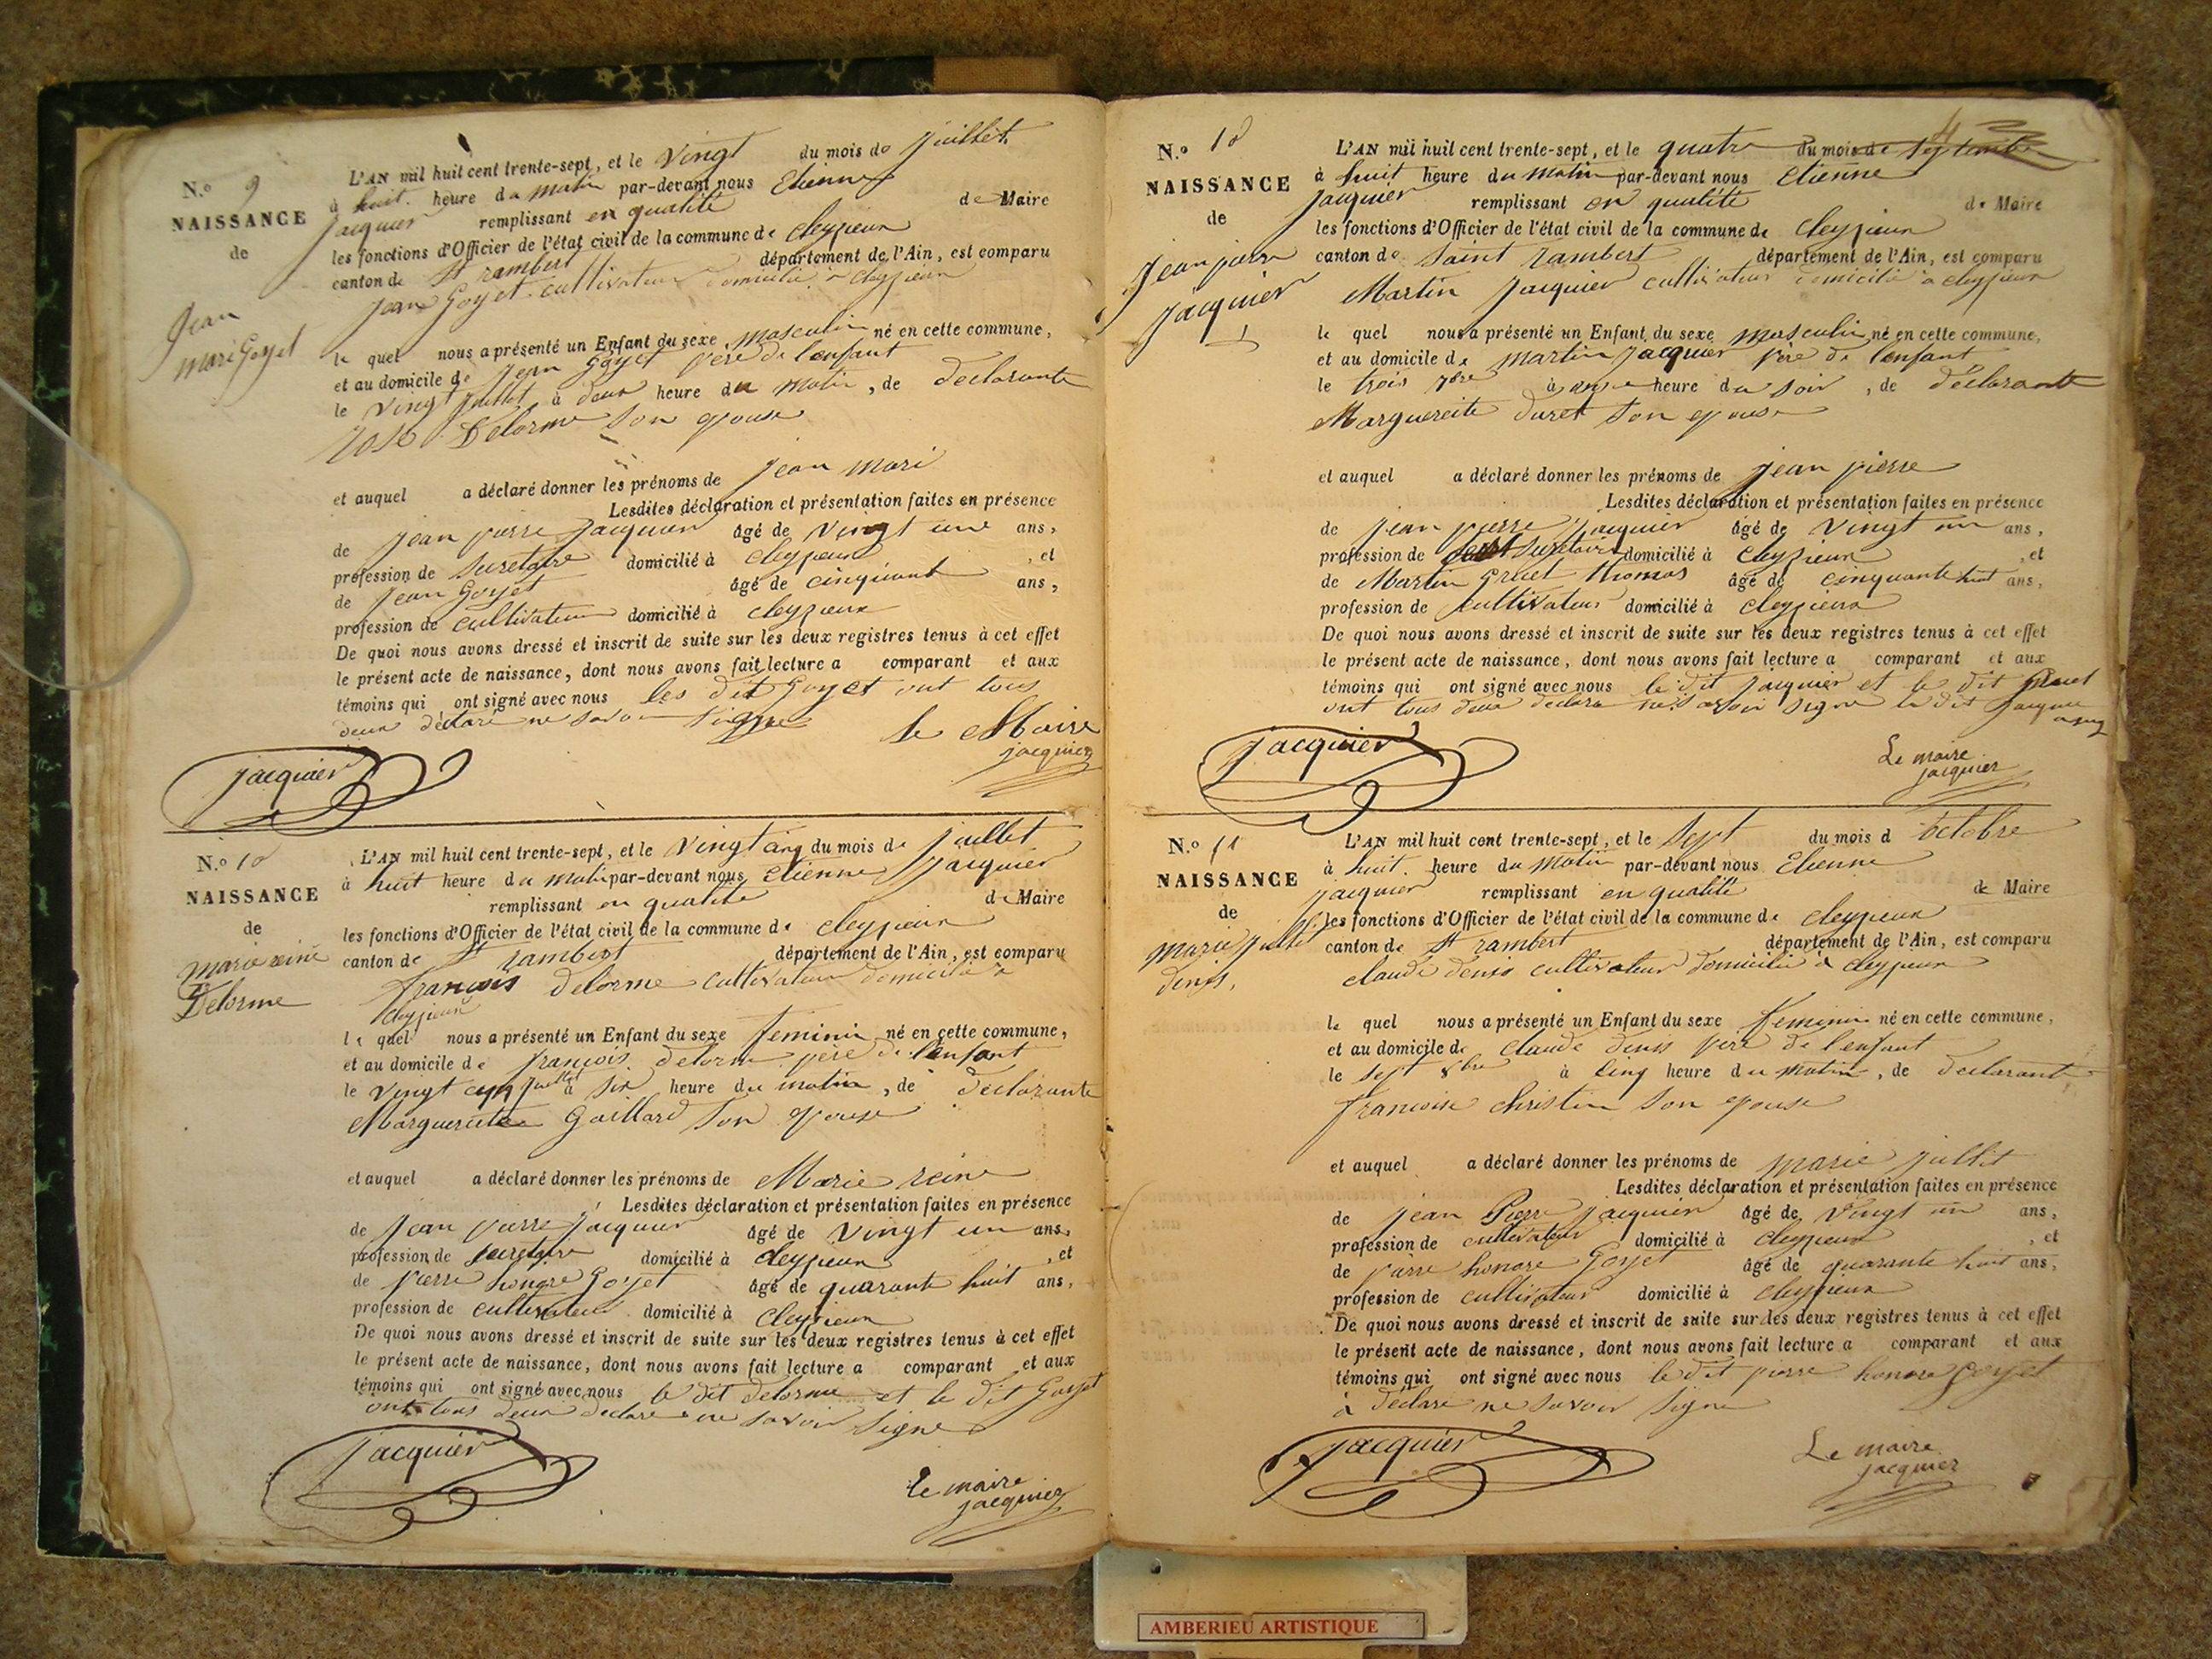 N.o 9
NAISSANCE
de
Jean
mari Goyet
L'AN mil huit cent trente-sept, et le vingt du mois de juillet
à huit heure du matin par-devant nous Etienne
jacquier remplissant en qualité de Maire
les fonctions d'Officier de l'état civil de la commune de cleyzieux
canton de St rambert département de l'Ain, est comparu
jean Goyet cultivateur domicilié à cleyzieux
le quel nous a présenté un Enfant du sexe masculin né en cette commune,
et au domicile de jean Goyet père de l'enfant
le vingt juillet à deux heure du matin, de declarante
Delorme son epouse
et auquel a déclaré donner les prénoms de jean mari
Lesdites déclaration et présentation faites en présence
de jean pierre jacquier âgé de vingt une ans,
profession de secretaire domicilié à cleyzieux, et
de jean Goyet âgé de cinquant ans,
profession de cultivateur domicilié à cleyzieux
De quoi nous avons dressé et inscrit de suite sur les deux registres tenus à cet effet
le présent acte de naissance, dont nous avons fait lecture a comparant et aux
témoins qui ont signé avec nous les dit Goyet ont tous
deux déclaré ne savoir signe
le Maire
jacquier
jacquier
N.o 10
NAISSANCE
de
marie reine
Delorme
L'AN mil huit cent trente-sept, et le vingt cinq du mois de juillet
à huit heure du matin par-devant nous Etienne jacquier
remplissant en qualité de Maire
les fonctions d'Officier de l'état civil de la commune de cleyzieux
canton de St rambert département de l'Ain, est comparu
françois Delorme cultivateur domicilié à
cleyzieux
le quel nous a présenté un Enfant du sexe feminin né en cette commune,
et au domicile de françois Delorme père de l'enfant
le vingt cinq juillet à six heure du matin, de declarante
Marguerite Gaillard son epouse
et auquel a déclaré donner les prénoms de Marie reine
Lesdites déclaration et présentation faites en présence
de jean pierre jacquier âgé de vingt un ans,
profession de secretaire domicilié à cleyzieux, et
de pierre honore Goyet âgé de quarante huit ans,
profession de cultivateur domicilié à cleyzieux
De quoi nous avons dressé et inscrit de suite sur les deux registres tenus à cet effet
le présent acte de naissance, dont nous avons fait lecture a comparant et aux
témoins qui ont signé avec nous le dit delorme et le dit Goyet
ont tous deux declare ne savoir signe
jacquier
Le maire
jacquier
4
N.o 10
NAISSANCE
de
jean pierre
jacquier
L'AN mil huit cent trente-sept, et le quatre du mois de septembre
à huit heure du matin par-devant nous Etienne
jacquier remplissant en qualité de Maire
les fonctions d'Officier de l'état civil de la commune de cleyzieux
canton de saint rambert département de l'Ain, est comparu
Martin jacquier cultivateur domicilié à cleyzieux
le quel nous a présenté un Enfant du sexe masculin né en cette commune,
et au domicile de martin jacquier père de l'enfant
le trois 7bre à onze heure du soir, de déclarante
Marguereite duret son epouse
et auquel a déclaré donner les prénoms de jean pierre
Lesdites déclaration et présentation faites en présence
de jean pierre jacquier âgé de vingt un ans,
profession de secretaire domicilié à cleyzieux, et
de Martin Gruet thomas âgé de cinquante huit ans,
profession de cultivateur domicilié à cleyzieux
De quoi nous avons dressé et inscrit de suite sur les deux registres tenus à cet effet
le présent acte de naissance, dont nous avons fait lecture a comparant et aux
témoins qui ont signé avec nous le dit jacquier et le dit Gruet
ont tous deux declare ne savoir signe le dit jacquier
jacquier
Le maire
jacquier
N.o 11
NAISSANCE
de
marie jullit
denis,
L'AN mil huit cent trente-sept, et le sept du mois d octobre
à huit heure du matin par-devant nous Etienne
jacquier remplissant en qualité de Maire
les fonctions d'Officier de l'état civil de la commune de cleyzieux
canton de St rambert département de l'Ain, est comparu
claude denis cultivateur domicilié à cleyzieux
le quel nous a présenté un Enfant du sexe feminin né en cette commune,
et au domicile de claude denis père de l'enfant
le sept 8bre à cinq heure du matin, de declarante
francoise christin son epouse
et auquel a déclaré donner les prénoms de marie jullit
Lesdites déclaration et présentation faites en présence
de jean Pierre jacquier âgé de vingt un ans,
profession de cultivateur domicilié à cleyzieux, et
de pierre honore Goyet âgé de quarante huit ans,
profession de cultivateur domicilié à cleyzieux
De quoi nous avons dressé et inscrit de suite sur les deux registres tenus à cet effet
le présent acte de naissance, dont nous avons fait lecture a comparant et aux
témoins qui ont signé avec nous le dit pierre honore Goyet
à déclare ne savoir signe
jacquier
Le maire
jacquier
AMBERIEU ARTISTIQUE